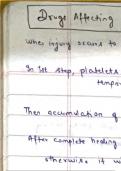 Drugs Affecting
When injury occurs to
In 1st step, platelets
Then accumulation of
After complete healing
otherwise it w